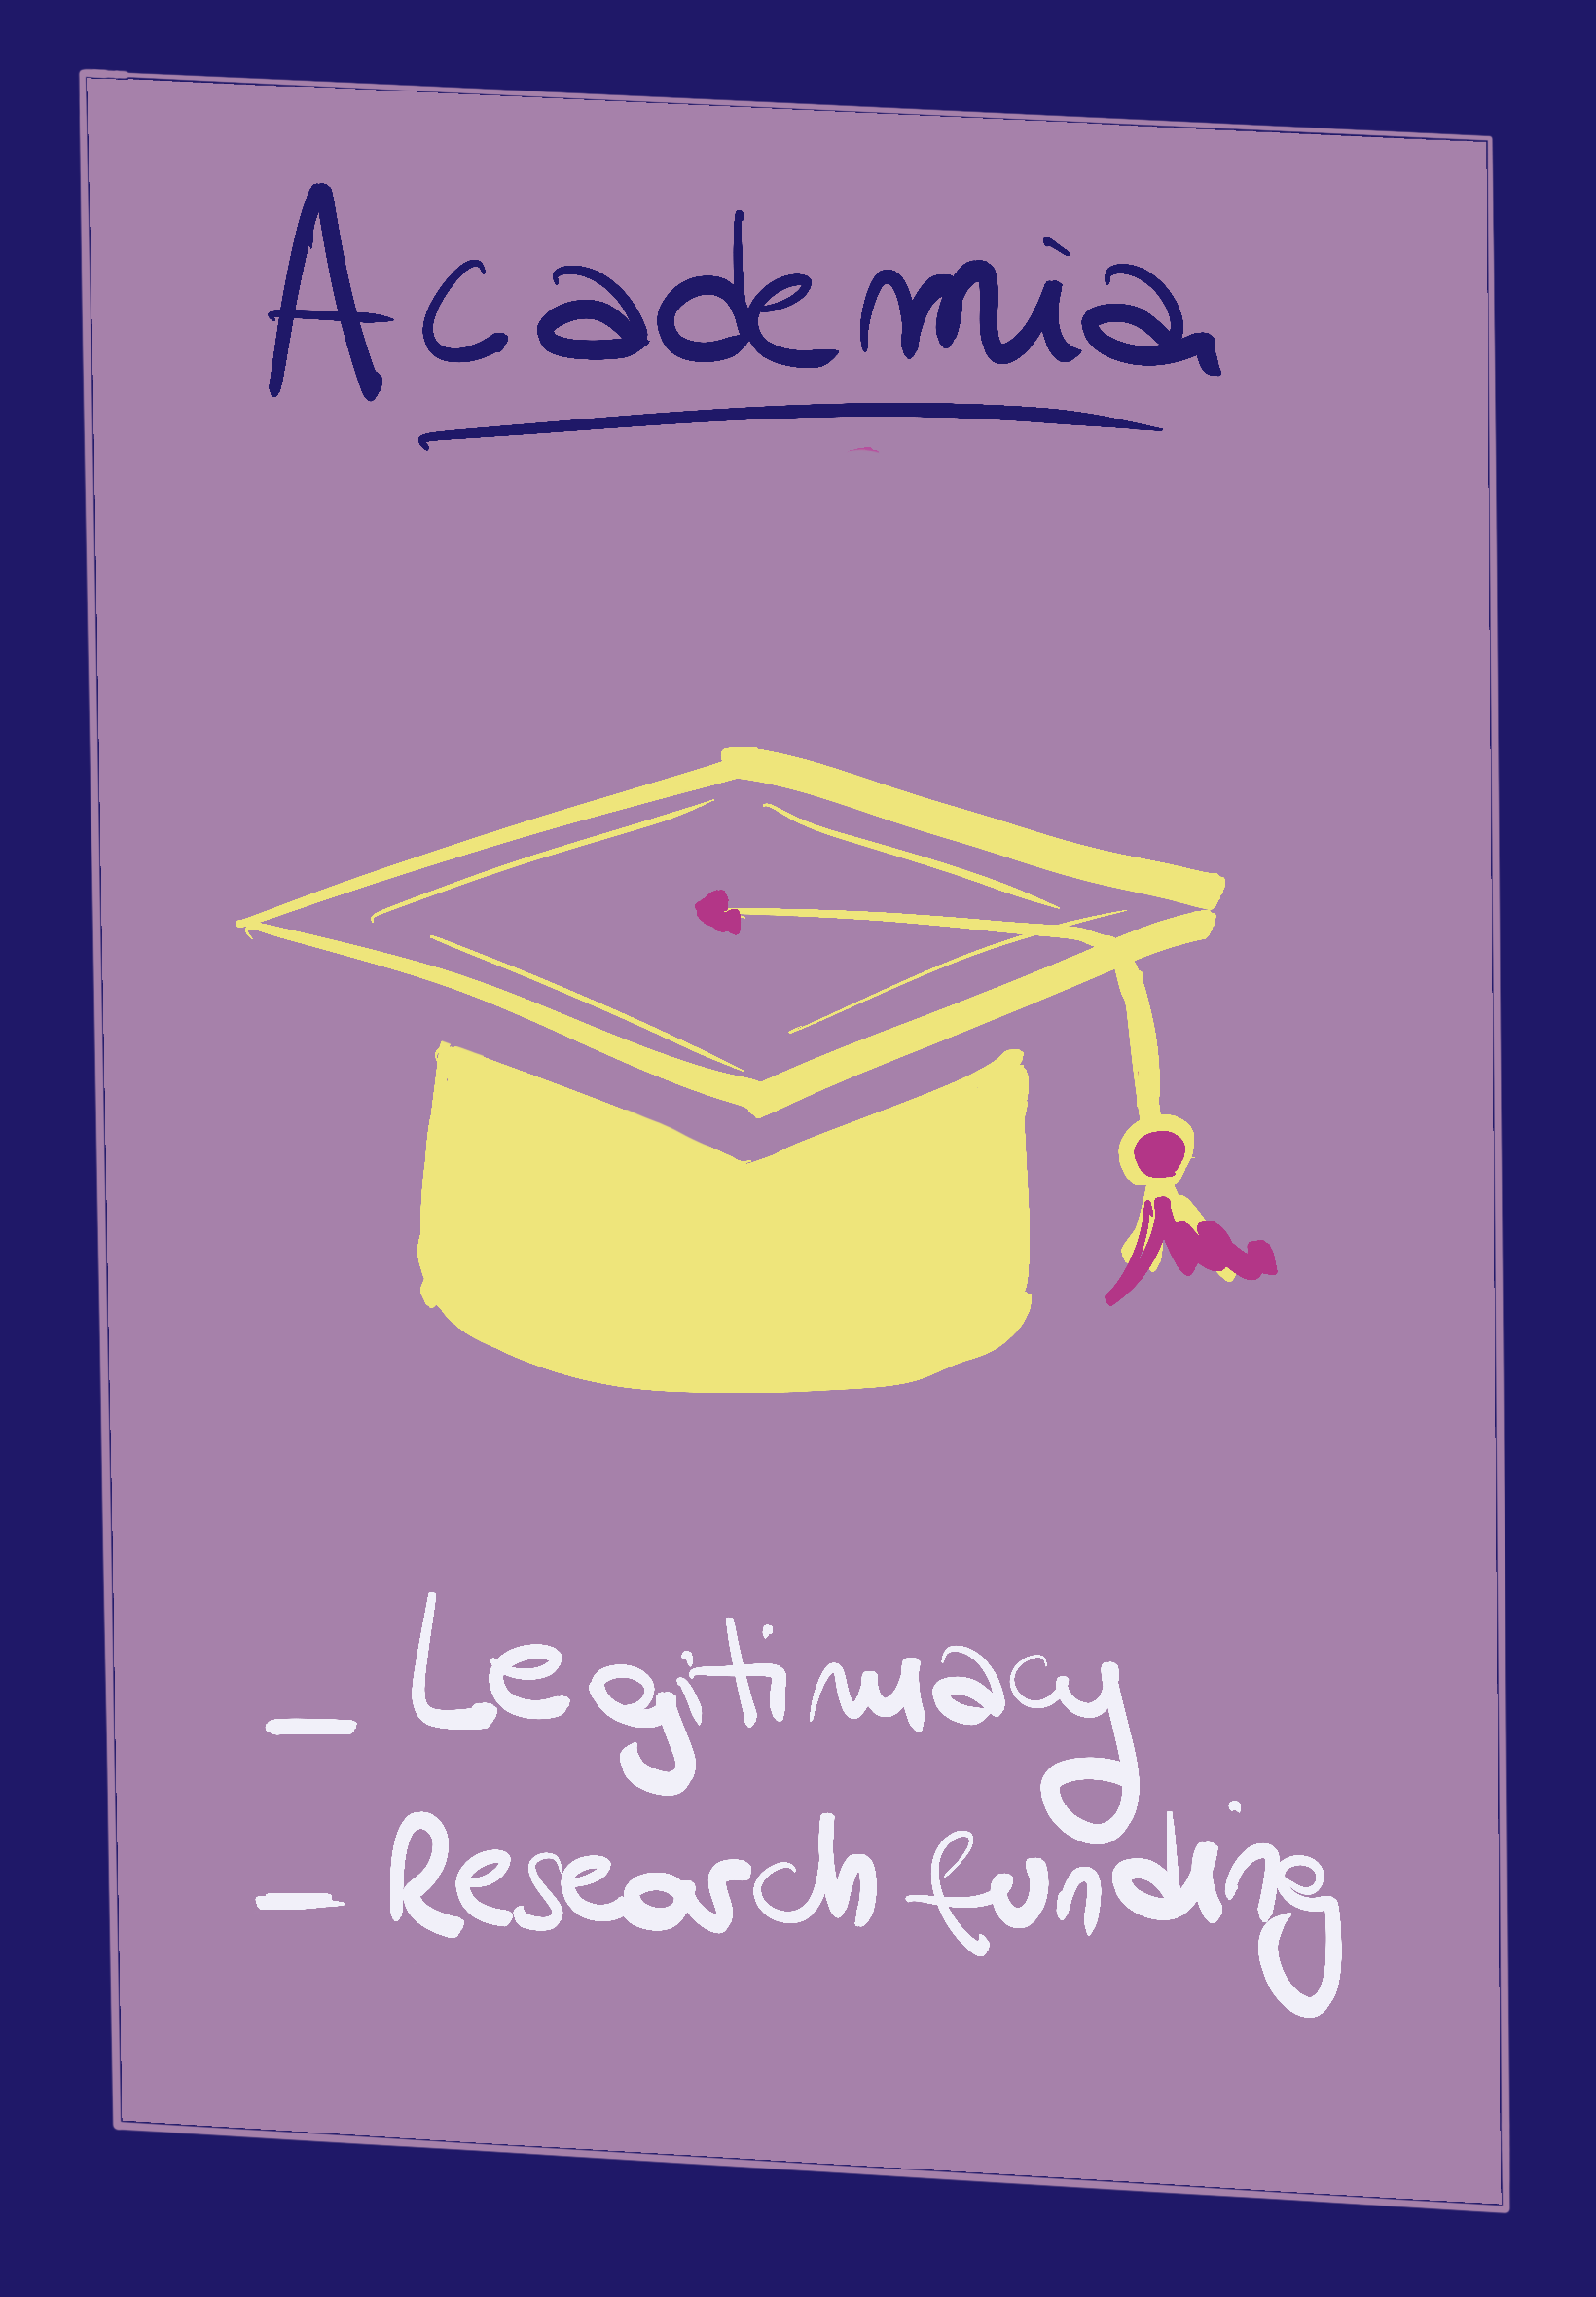 Academia
- Legitimacy
- Research funding